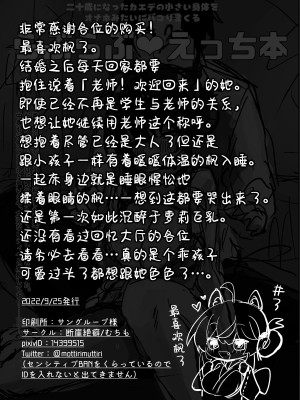 非常感谢各位的购买!
最喜欢枫了。
结婚之后每天回家都要
抱住说着「老师!欢迎回来」的她。
即使已经不再是学生与老师的关系,
也想让她继续用老师这个称呼。
想抱着尽管已经是大人了但还是
跟小孩子一样有着暖暖体温的枫入睡。
一起床身边就是睡眼惺忪地
揉着眼睛的枫…一想到这都要哭出来了。
还是第一次如此沉醉于萝莉巨乳。
还没有看过回忆大厅的各位
请务必去看看…真的是个乖孩子
可爱过头了都想跟她色色了…。
2022/9/25発行
印刷所:サングループ様
サークル:断崖絶癖/むちも
pixivID:74399515
Twitter:@mottirimuttiri
(センシティブBANをくらっているので
IDを入れないと出てきません)
最喜欢枫了